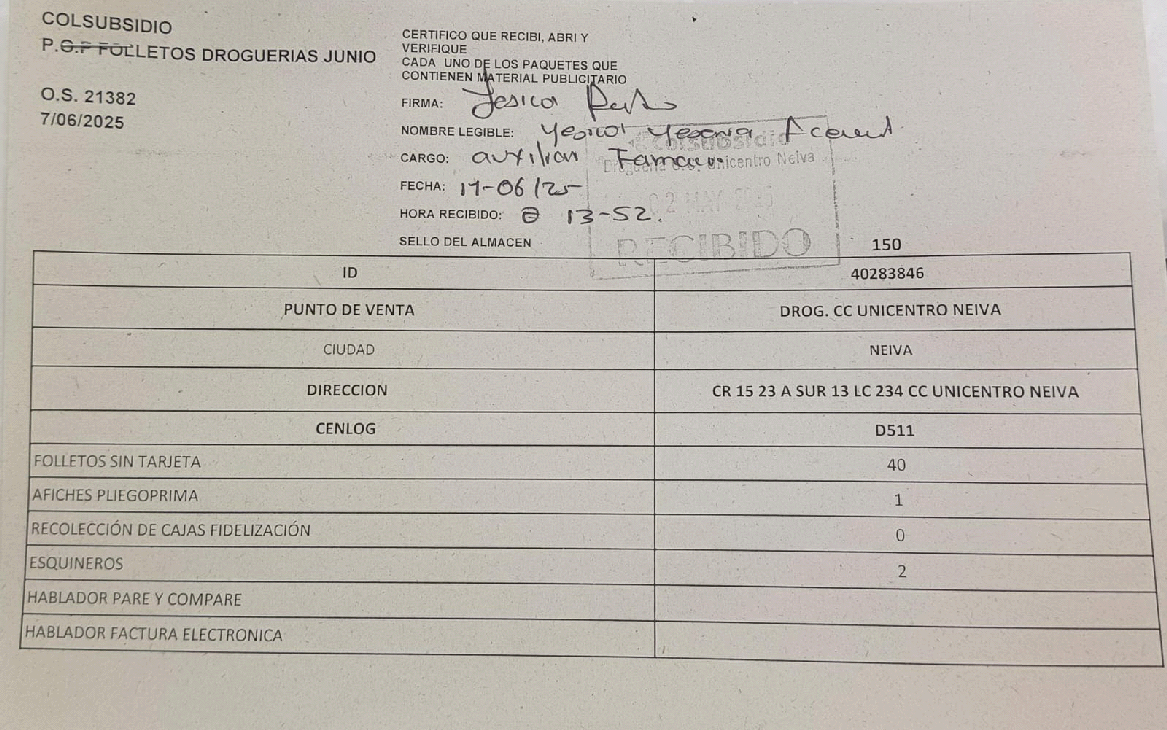 COLSUBSIDIO
P.O.P FOLLETOS DROGUERIAS JUNIO
O.S. 21382
7/06/2025
CERTIFICO QUE RECIBI, ABRI Y
VERIFIQUE
CADA UNO DE LOS PAQUETES QUE
CONTIENEN MATERIAL PUBLICITARIO
FIRMA: Jesica
NOMBRE LEGIBLE: Yesica Yesenia
CARGO: auxiliar
FECHA: 17-06/25
HORA RECIBIDO: 13-52.
SELLO DEL ALMACEN
Colsubsidio
Unicentro Neiva
RECIBIDO
150
ID 40283846
PUNTO DE VENTA DROG. CC UNICENTRO NEIVA
CIUDAD NEIVA
DIRECCION CR 15 23 A SUR 13 LC 234 CC UNICENTRO NEIVA
CENLOG D511
FOLLETOS SIN TARJETA 40
AFICHES PLIEGOPRIMA 1
RECOLECCIÓN DE CAJAS FIDELIZACIÓN 0
ESQUINEROS 2
HABLADOR PARE Y COMPARE
HABLADOR FACTURA ELECTRONICA